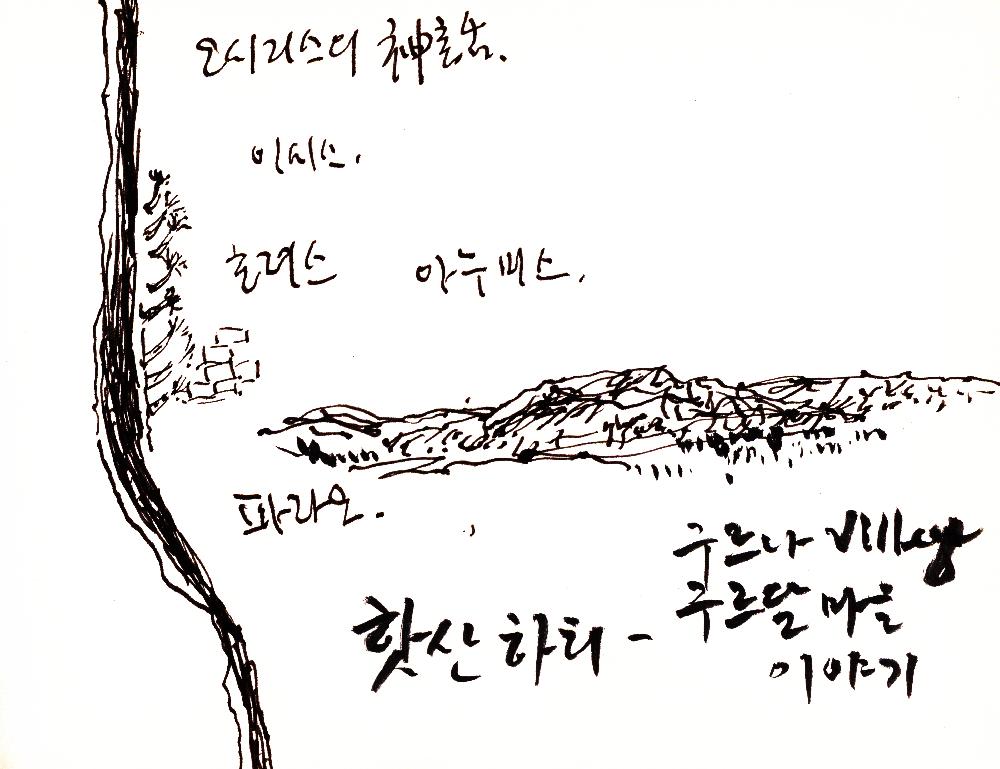 오시리스의 神話.
이시스.
호러스 아누비스.
파라오.
구르나 Village
핫산 하티 - 구르달 마을
이야기